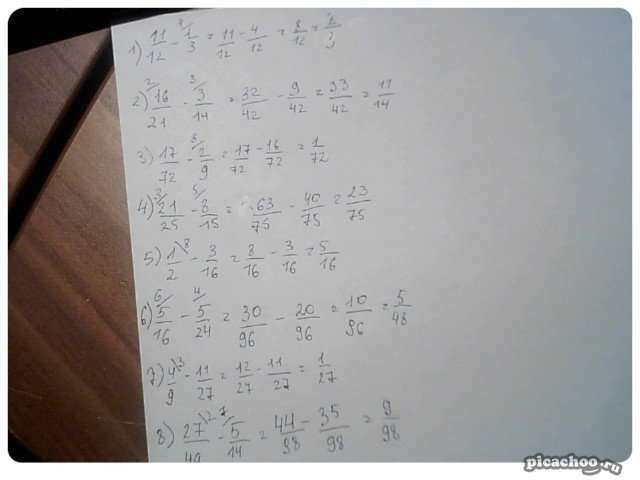 1) 11/12 - 1/3 = 11/12 - 4/12 = 8/12 = 2/3
2) 16/21 - 3/14 = 32/42 - 9/42 = 33/42 = 11/14
3) 17/72 - 2/9 = 17/72 - 16/72 = 1/72
4) 21/25 - 8/15 = 63/75 - 40/75 = 23/75
5) 1/2 - 3/16 = 8/16 - 3/16 = 5/16
6) 5/16 - 5/24 = 30/96 - 20/96 = 10/96 = 5/48
7) 4/9 - 11/27 = 12/27 - 11/27 = 1/27
8) 27/49 - 5/14 = 44/98 - 35/98 = 9/98
picachoo.ru